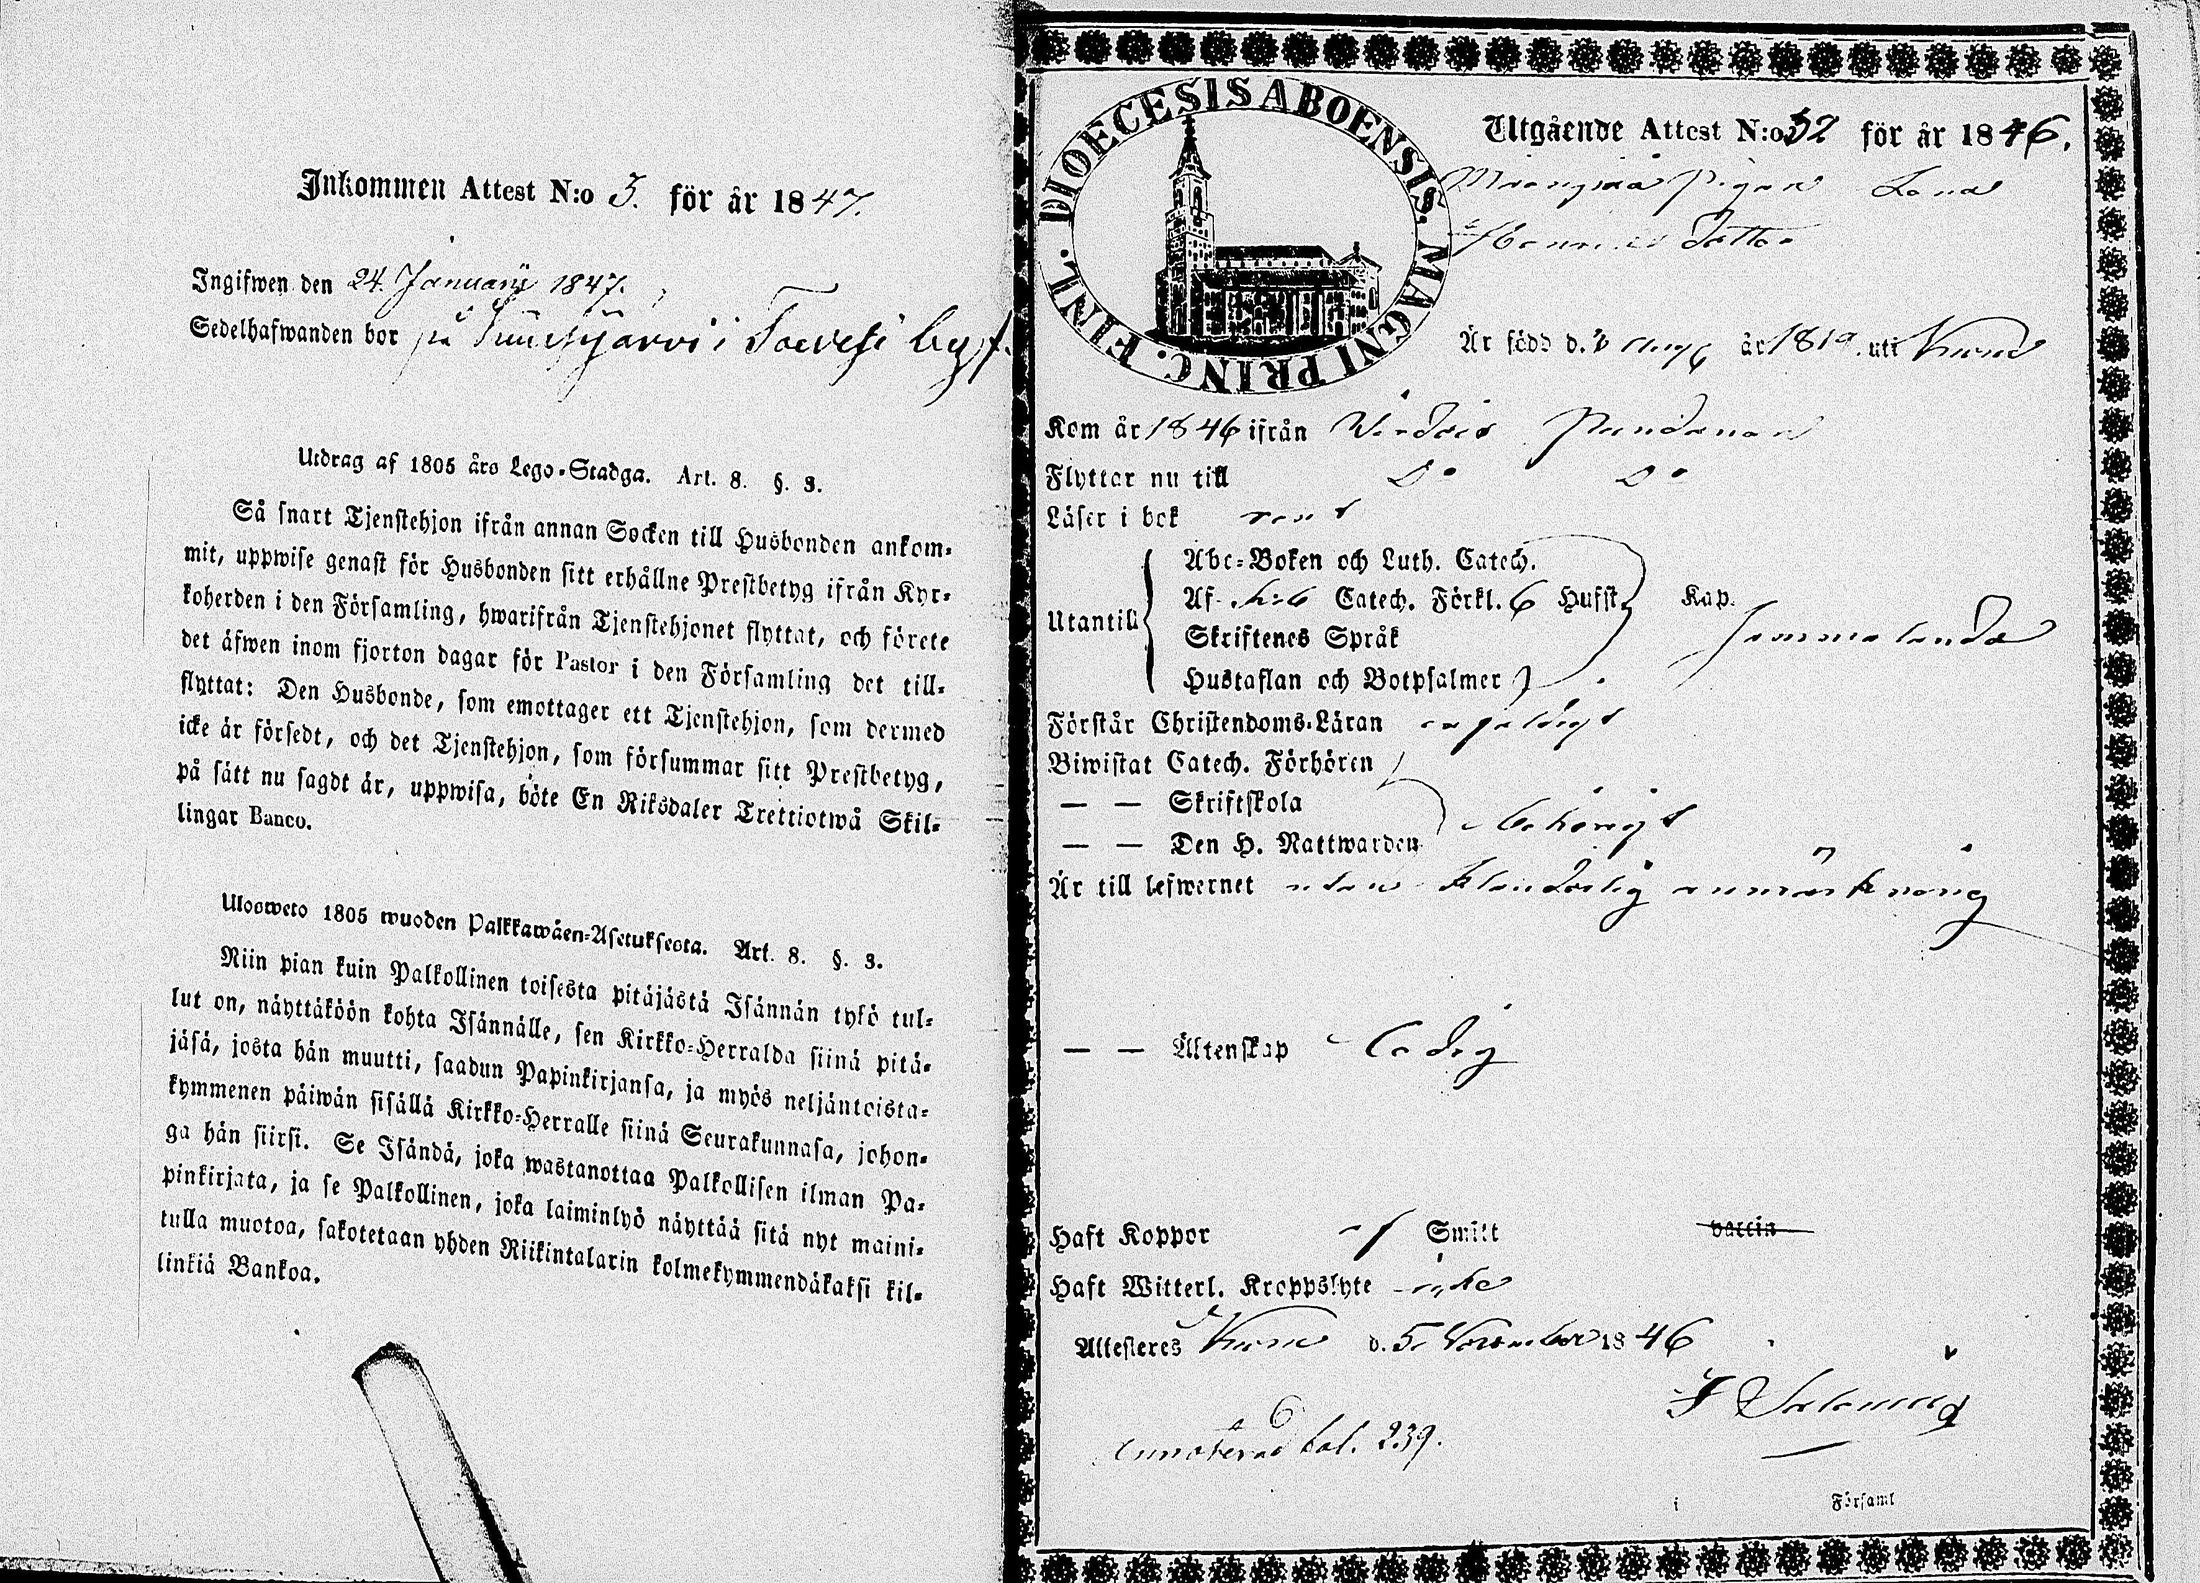 Inkommen Attest N:o 3. för år 1847.
Ingifwen den 24. Januarii 1847.
Sedelhafwanden bor på i Toivesi by
Utdrag af 1805 års Lego-Stadga. Art. 8. §. 3.
Så snart Tjenstehjon ifrån annan Socken till Husbonden ankom-
mit, uppwise genast för Husbonden sitt erhållne Prestbetyg ifrån Kyr-
koherden i den Församling, hwarifrån Tjenstehjonet flyttat, och förete
det äfwen inom fjorton dagar för Pastor i den Församling det till-
flyttat: Den Husbonde, som emottager ett Tjenstehjon, som dermed
icke är försedt, och det Tjenstehjon, som försummar sitt Prestbetyg,
på sätt nu sagdt är, uppwisa, böte En Riksdaler Trettiotwå Skil-
lingar Banco.
Ulosweto 1805 wuoden Palkkawäen-Asetuksesta. Art. 8. §. 3.
Niin pian kuin Palkollinen toisesta pitäjästä Isännän tykö tul-
lut on, näyttäköön kohta Isännälle, sen Kirkko-Herralda siinä pitä-
jäsä, josta hän muutti, saadun Papinkirjansa, ja myös neljäntoista-
kymmenen päiwän sisällä Kirkko-Herralle siinä Seurakunnasa, johon-
ga hän siirsi. Se Isändä, joka wastanottaa Palkollisen ilman Pa-
pinkirjata, ja se Palkollinen, joka laiminlyö näyttää sitä nyt maini-
tulla muotoa, sakotetaan yhden Riikintalarin kolmekymmendäkaksi kil-
linkiä Bankoa.
DIOECESIS ABOENSIS. MAGNI PRINC. FINL.
Utgående Attest N:o 52 för år 1846.
Pigan Lena
dotter
Är född d. Aug år 1819. uti Kuru
Kom år 1846 ifrån Wirdois
Flyttar nu till Do Do
Läser i bok rent
Abc-Boken och Luth. Catech.
Utantill Af Catech. Förkl. 6 Hufst. Kap.
Skriftenes Språk
Hustaflan och Botpsalmer
Förstår Christendoms-Läran
Biwistat Catech. Förhören
— — Skriftskola
— — Den H. Nattwarden behörigt
Är till lefwernet utan klanderlig anmärkning
— — Äktenskap ledig
Haft Koppor af Smitt vaccin
Haft Witterl. Kroppslyte icke
Attesteres Kuru d. 5 November 1846
Annoterad fol. 239.
i Församl